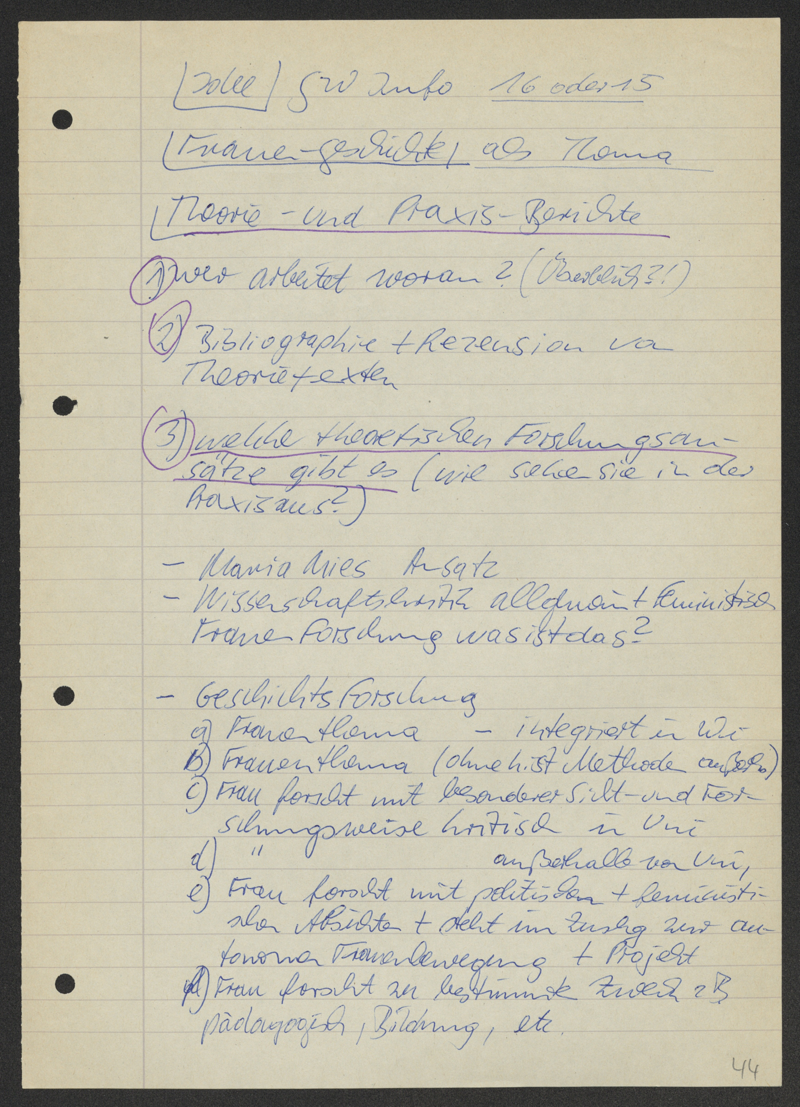 Idee GW Info 16 oder 15
Frauen-geschichte, als Thema
Theorie - und Praxis-Berichte
1) wer arbeitet woran? (Überblick?!)
2) Bibliographie + Rezension von
Theorietexten
3) welche theoretischen Forschungsan-
sätze gibt es (wie sehen sie in der
Praxis aus?)
- Maria Mies Ansatz
- Wissenschaftskritik allgemein + Feministisch
Frauen Forschung was ist das?
- Geschichts Forschung
a) Frauenthema - integriert in Uni
b) Frauenthema (ohne hist Methoden außerh.)
c) Frau forscht mit besonderer Sicht- und For-
schungsweise kritisch in Uni
d) " außerhalb von Uni,
e) Frau forscht mit politischen + feministi-
schen Absichten + steht im Zushg zur au-
tonomen Frauenbewegung + Projekt
f) Frau forscht zu bestimmte Zweck zB
pädagogisch, Bildung, etc.
44